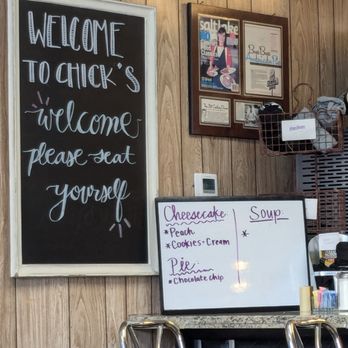 WELCOME
TO CHICK'S
welcome
please seat
yourself
saltlake
Cheesecake
*Peach
*Cookies-Cream
Pie
*Chocolate chip
Soup
*